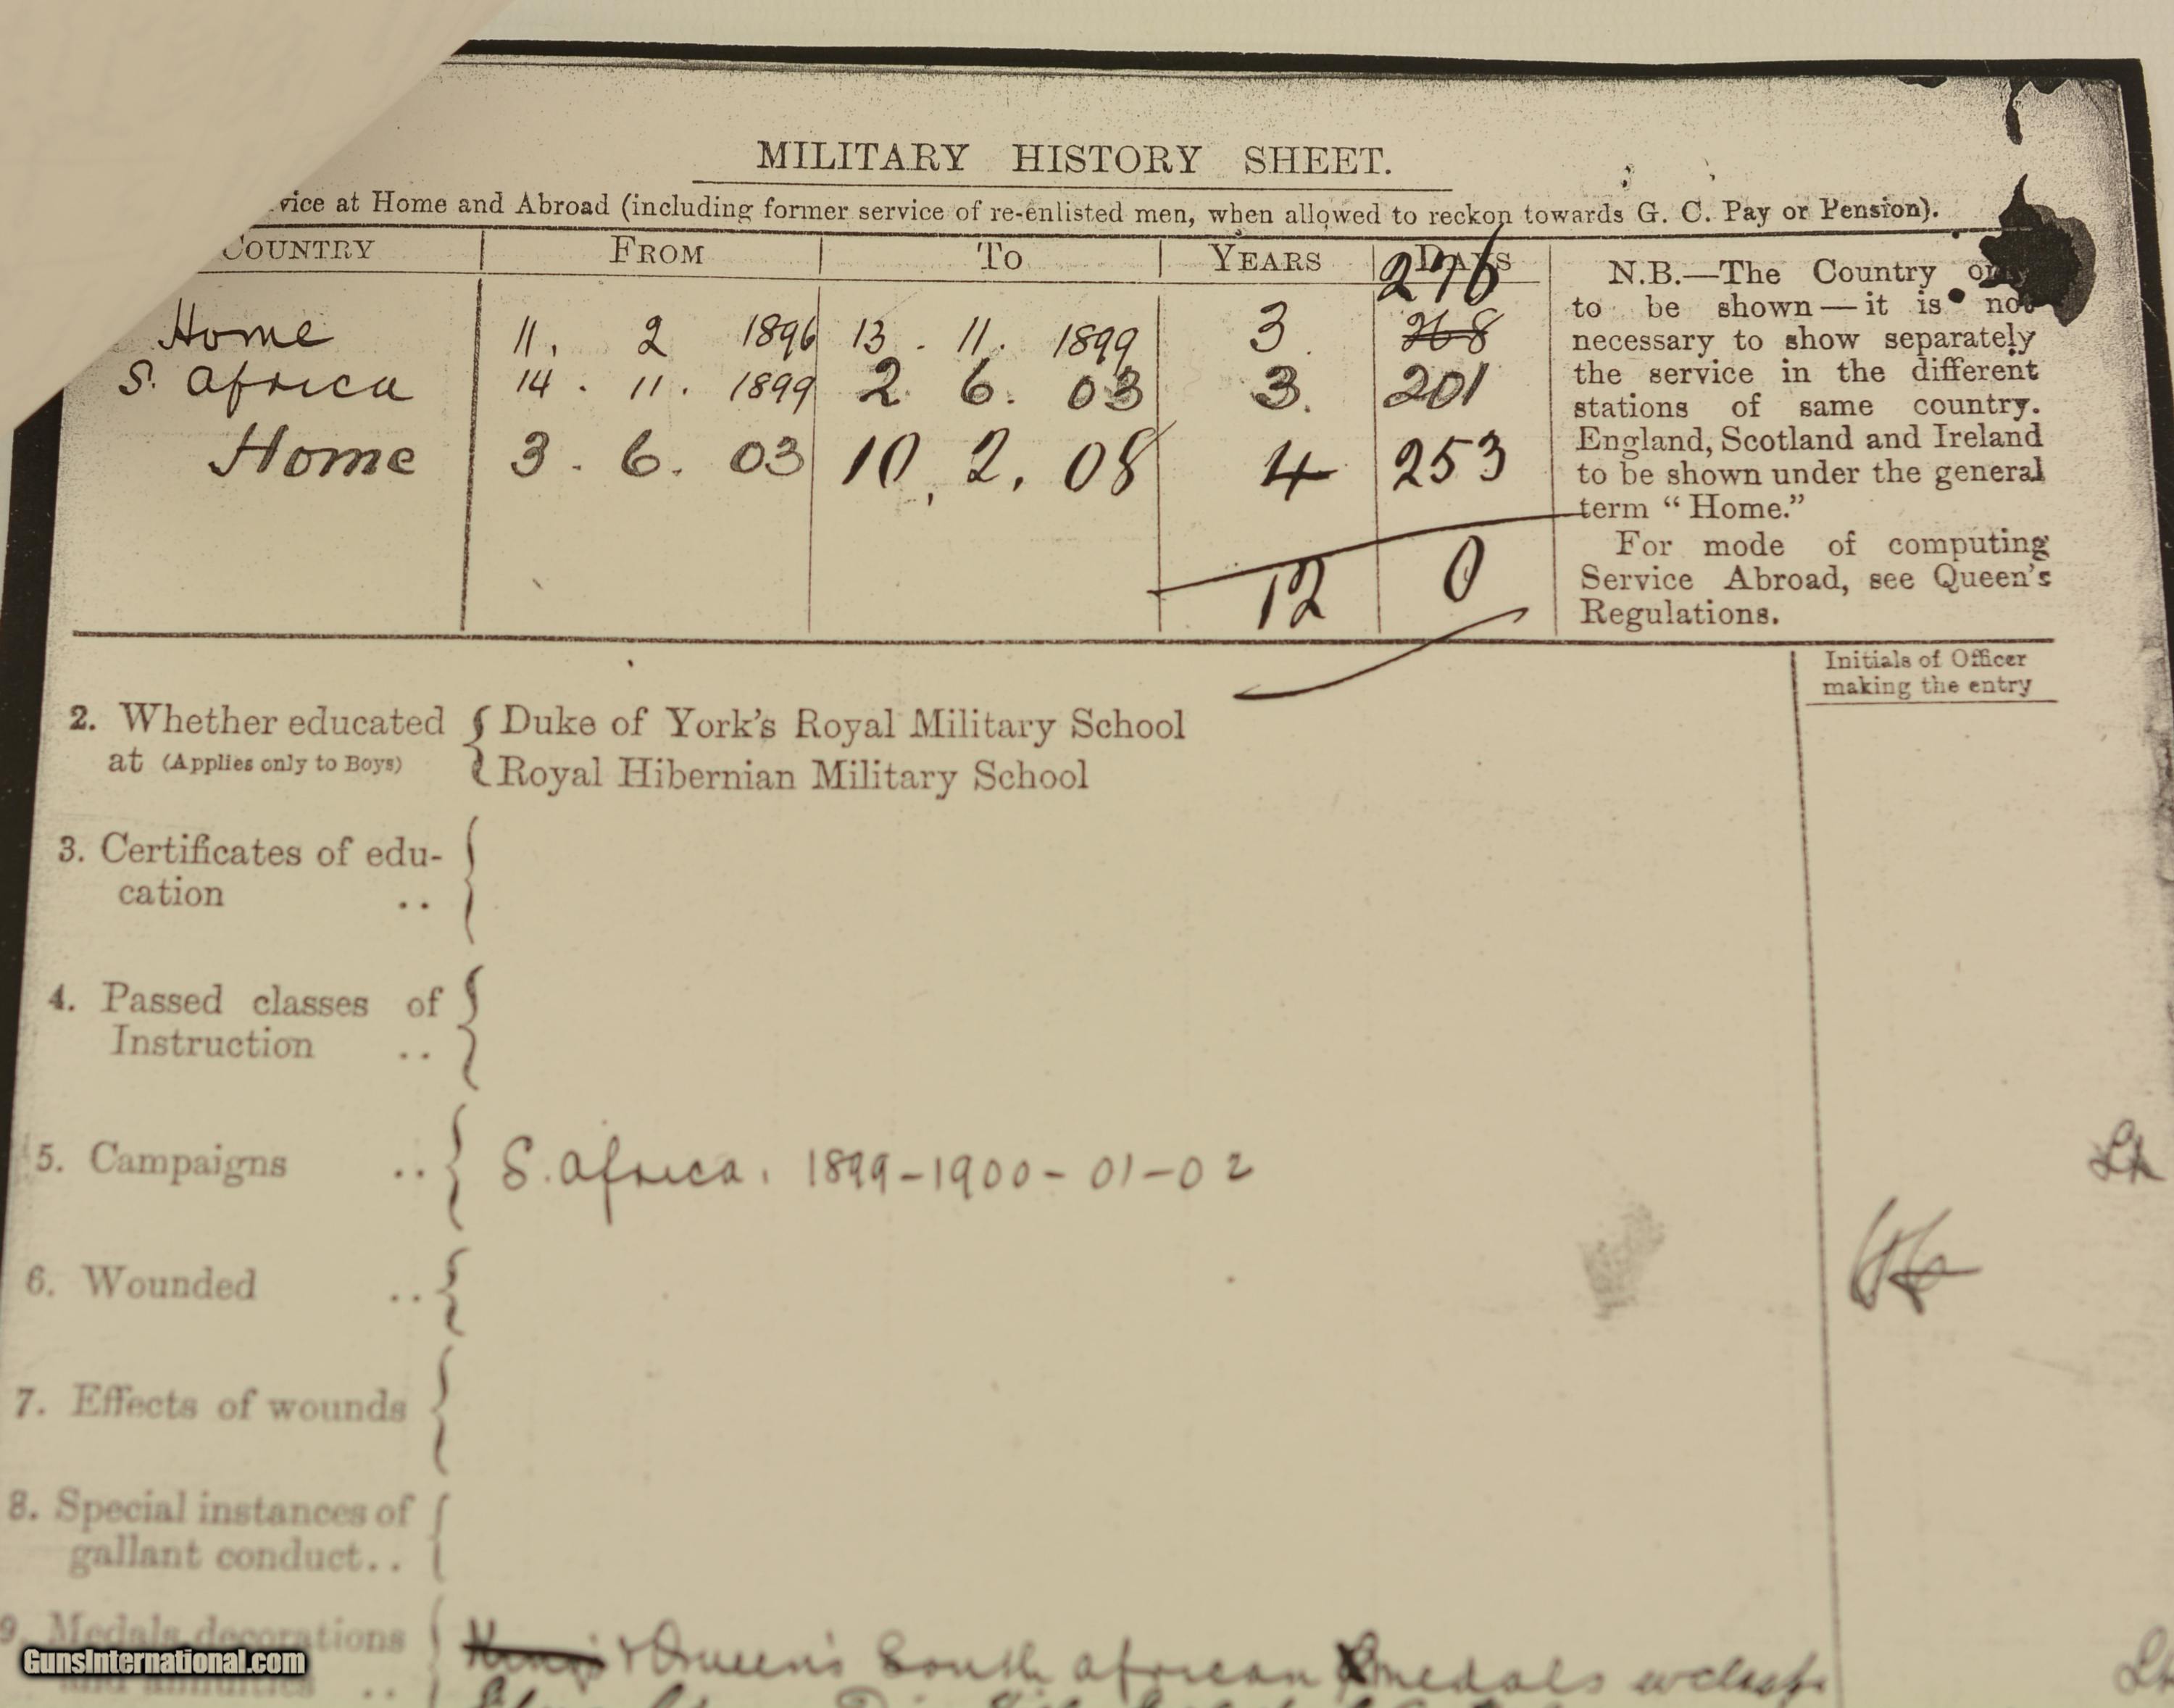 MILITARY HISTORY SHEET.
vice at Home and Abroad (including former service of re-enlisted men, when allowed to reckon towards G. C. Pay or Pension).
COUNTRY FROM TO YEARS DAYS
276
Home 11. 2 1896 13. 11. 1899 3 268
S. Africa 14. 11. 1899 2. 6. 03 3. 201
Home 3. 6. 03 10. 2. 08 4 253
12 0
N.B.—The Country only
to be shown—it is not
necessary to show separately
the service in the different
stations of same country.
England, Scotland and Ireland
to be shown under the general
term “Home.”
For mode of computing
Service Abroad, see Queen's
Regulations.
Initials of Officer
making the entry
2. Whether educated
at (Applies only to Boys)
Duke of York's Royal Military School
Royal Hibernian Military School
3. Certificates of edu-
cation ..
4. Passed classes of
Instruction ..
5. Campaigns .. S. Africa. 1899-1900-01-02
6. Wounded ..
7. Effects of wounds
8. Special instances of
gallant conduct..
9. Medals decorations
and annuities ..
King's & Queen's South African medals
GunsInternational.com